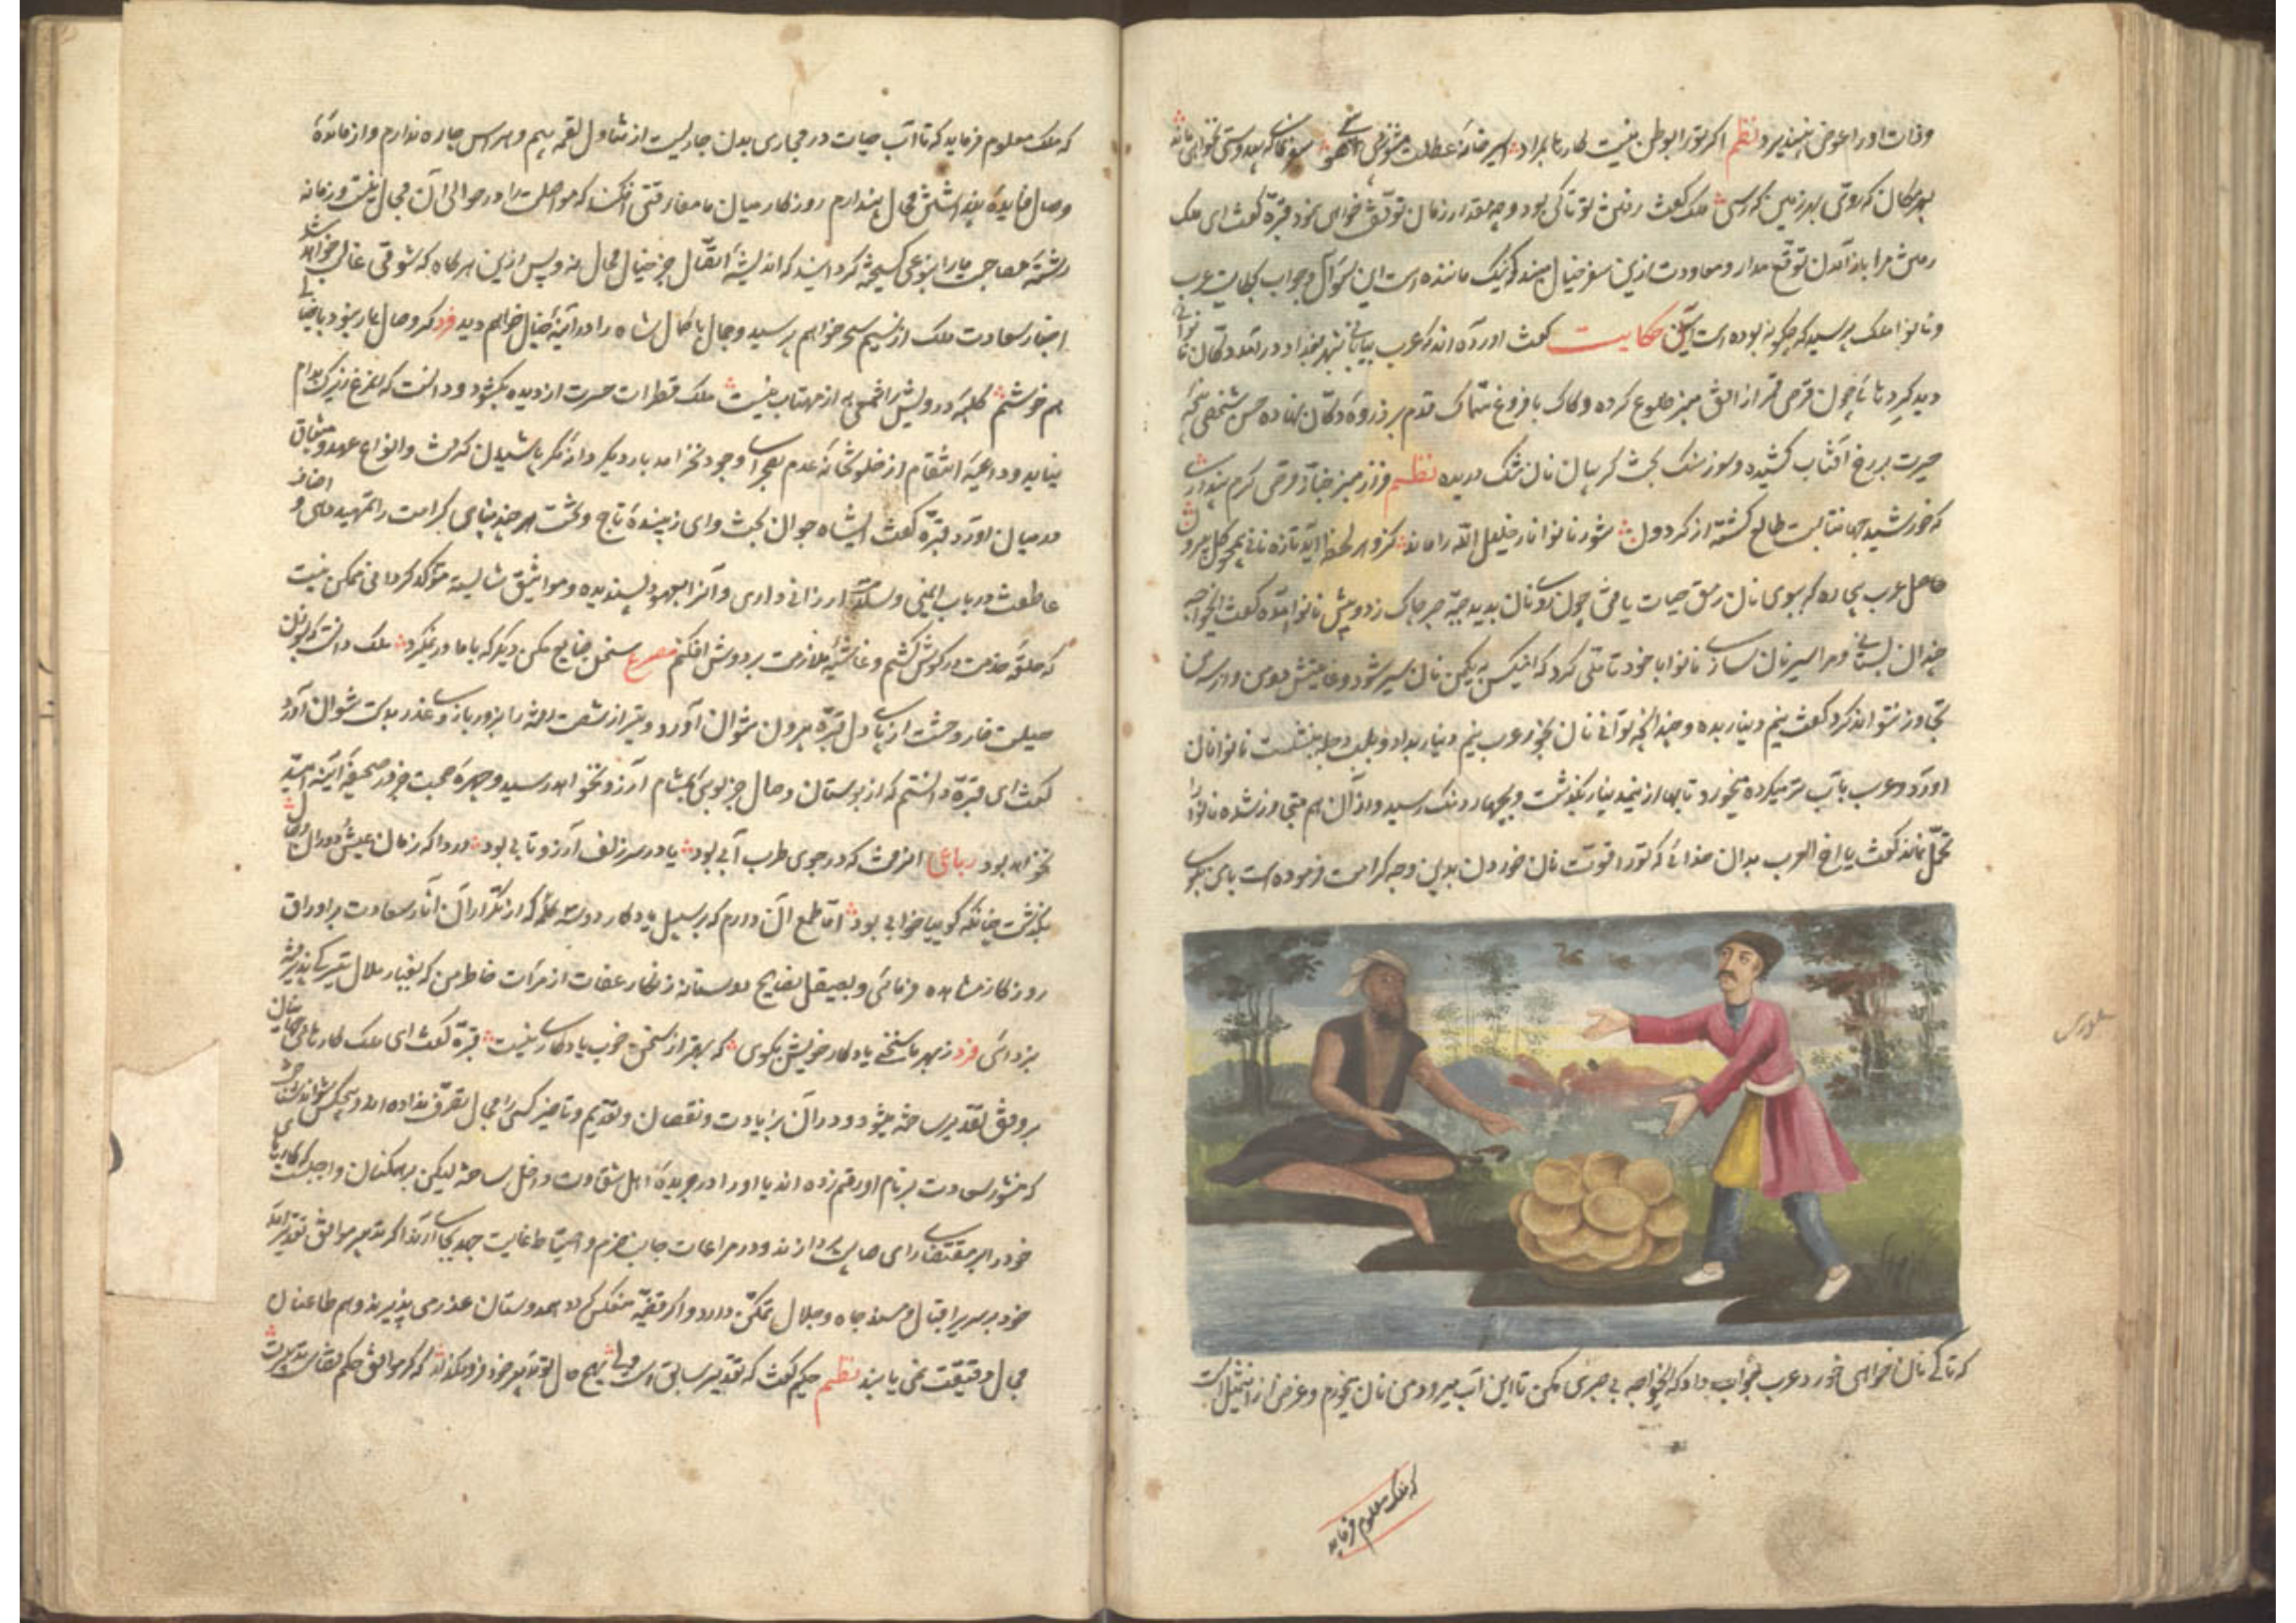 وفات او را عوض نپذیرد نظم اگر تو را بوطن نیست کارها بمراد اسیر خانه عطالت مشو ز بی سفر گزین که بهر
بهر مکان که روی بهر زمین که رسی ملک گفت رفتن تو تا کی بود و چه مقدار زمان توقف خواهی نمود قبره گفت ای ملک
رفتن مرا باز آمدن توقع مدار و معاودت ازین سفر خیال مبند که نیک ماننده است این سؤال و جواب بحکایت عرب
و نانوا ملک پرسید که چگونه بوده است آن حکایت گفت آورده اند که عرب بیابانی بشهر بغداد درآمد دکان نانوائی
دید گرده ها چون قرص قمر از افق میز طلوع کرده و کاک با فروغ سماک قدم بر ذروه دکان نهاده
حیرت بر رخ آفتاب کشیده و سوز سنگ گریبان نان تنک دریده نظم فراز میز خباز قرص گرم پنداری
که خورشید جهانتابست طالع گشته از گردون تنور نانوا نار خلیل الله را ماند کزو هر لحظه آید تازه نانی همچو گل بیرون
حاصل عرب بیچاره که ببوی نان رمق حیات یافتی چون روی نان بدید جبه صبر چاک زد و پیش نانوا آمده گفت ایخواجه
چندان بستانی و مرا سیر نان سازی نانوا با خود تأملی کرد که اینکس به یکمن نان سیر شود و غایتش دو من و از سه من
تجاوز نتواند کرد گفت نیم دینار بده و چندانچه توانی نان بخور عرب نیم دینار بداد و بلب دجله بنشست نانوا نان
آورد و عرب بآب تر میکرده میخورد تا بها از نیم دینار بگذشت و بچهار دنگ رسید و از آن هم متجاوز شده نانوا را
تحمل نماند گفت یا اخ العرب بدان خدائی که تو را قوت نان خوردن بدین وجه کرامت فرموده است با من بگوی
که تا کی نان خواهی خورد عرب جواب داد که ایخواجه بی صبری مکن تا این آب میرود من نان میخورم و غرض از این تمثیل آنست
که ملک معلوم فرماید
که ملک معلوم فرماید که تا آب حیات در مجاری بدن جاریست از تناول لقمه بیم و هراس چاره ندارم و از مائده
وصال فایده محال پندارم روزگار میان ما مفارقتی افکند که مواصلت را در حوالی آن مجال نیست و زمانه
رشته مصاحبت ما را بنوعی گسیخته گردانید که اندیشه اتصال جز خیال محال نه و پس ازین هرگاه که شوقی غالب خواهد شد
اخبار سعادت ملک از نسیم سحر خواهم پرسید و جمال با کمال شاه را در آئینه خیال خواهم دید فرد گر وصال یار نبود با خیالی
هم خوشم کلبه درویش را شمعی به از مهتاب نیست ملک قطرات حسرت از دیده بگشود و دانست که مرغ زیرک بدام
نیاید و داعیه انتقام از خلوتخانه عدم بصحرای وجود نخرامد بار دیگر دانه مکر پاشیدن گرفت و انواع عهد و میثاق
در میان آورد قبره گفت ای شاه جوان بخت و ای زیبنده تاج و تخت هر چند بنای کرامت را تمهید دهی و اضاف
عاطفت در باب ایمنی و سلامت ارزانی داری و آنرا بعهود پسندیده و مواثیق شایسته مؤکد گردانی ممکن نیست
که حلقه خدمت در گوش کشم و غاشیه ملازمت بر دوش افکنم مصرع سخن ضایع مکن دیگر که با ما در نمیگیرد ملک دانست که بسوزن
حیلت خار وحشت از پای دل قبره بیرون نتوان آورد و تیر از شصت رفته را بزور بازوی عذر بدست نتوان آورد
گفت ای قبره دانستم که از بوستان وصال جز بویی بمشام آرزو نخواهد رسید و چهره صحبت جز در صحیفه آئینه امید
نخواهد بود رباعی افزون که در جوی طرب آبی بود یا در سر زلف آرزو تابی بود دردا که زمان عیش و دوران وصال
بگذشت چنانکه گوییا خوابی بود اما طمع آن دارم که بر سبیل یادگار دو سه کلمه که از تکرار آن آثار سعادت بر اوراق
روزگار مشاهده فرمائی و بصیقل نصایح دوستانه زنگار غفلت از مرآت خاطر من که بغبار ملال تیرگی پذیرفته
بزدائی فرد ز بهر ما سخنی یادگار خویش بگوی که بهتر از سخن خوب یادگاری نیست قبره گفت ای ملک کارهای جهانیان
بر وفق تقدیر ساخته میشود و در آن زیادت و نقصان و تقدیم و تاخیر کسی را مجال تصرف نداده اند و هیچکس نتواند شناخت
که منشور سعادت بر نام او رقم زده اند یا او را در جریده اهل شقاوت داخل ساخته لیکن بر همگنان واجبست که کارهای
خود را بر مقتضای رای صایب پردازند و در مراعات جانب حزم و احتیاط غایت جهد بجای آرند اگر تدبیر موافق تقدیر آمد
خود بر سریر اقبال و مسند جاه و جلال تمکن دارد و اگر قضیه منعکس گردد هم دوستان عذر می پذیرند و هم طاعنان
مجال وقیعت نمی یابند نظم حکیم گفت که تقدیر سابق است ولی بهیچ حال تو تدبیر خود فرو مگذار که گر موافق حکم قضاست تدبیرت